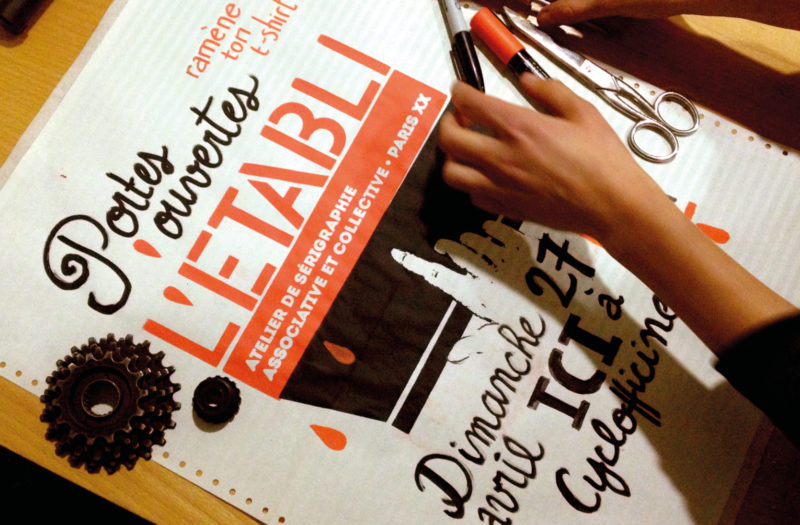 ramène
ton
t-shirt
Portes
ouvertes
L'ETABLI
ATELIER DE SÉRIGRAPHIE
ASSOCIATIVE ET COLLECTIVE • PARIS XX
Dimanche 27
avril ICI à
Cyclofficine